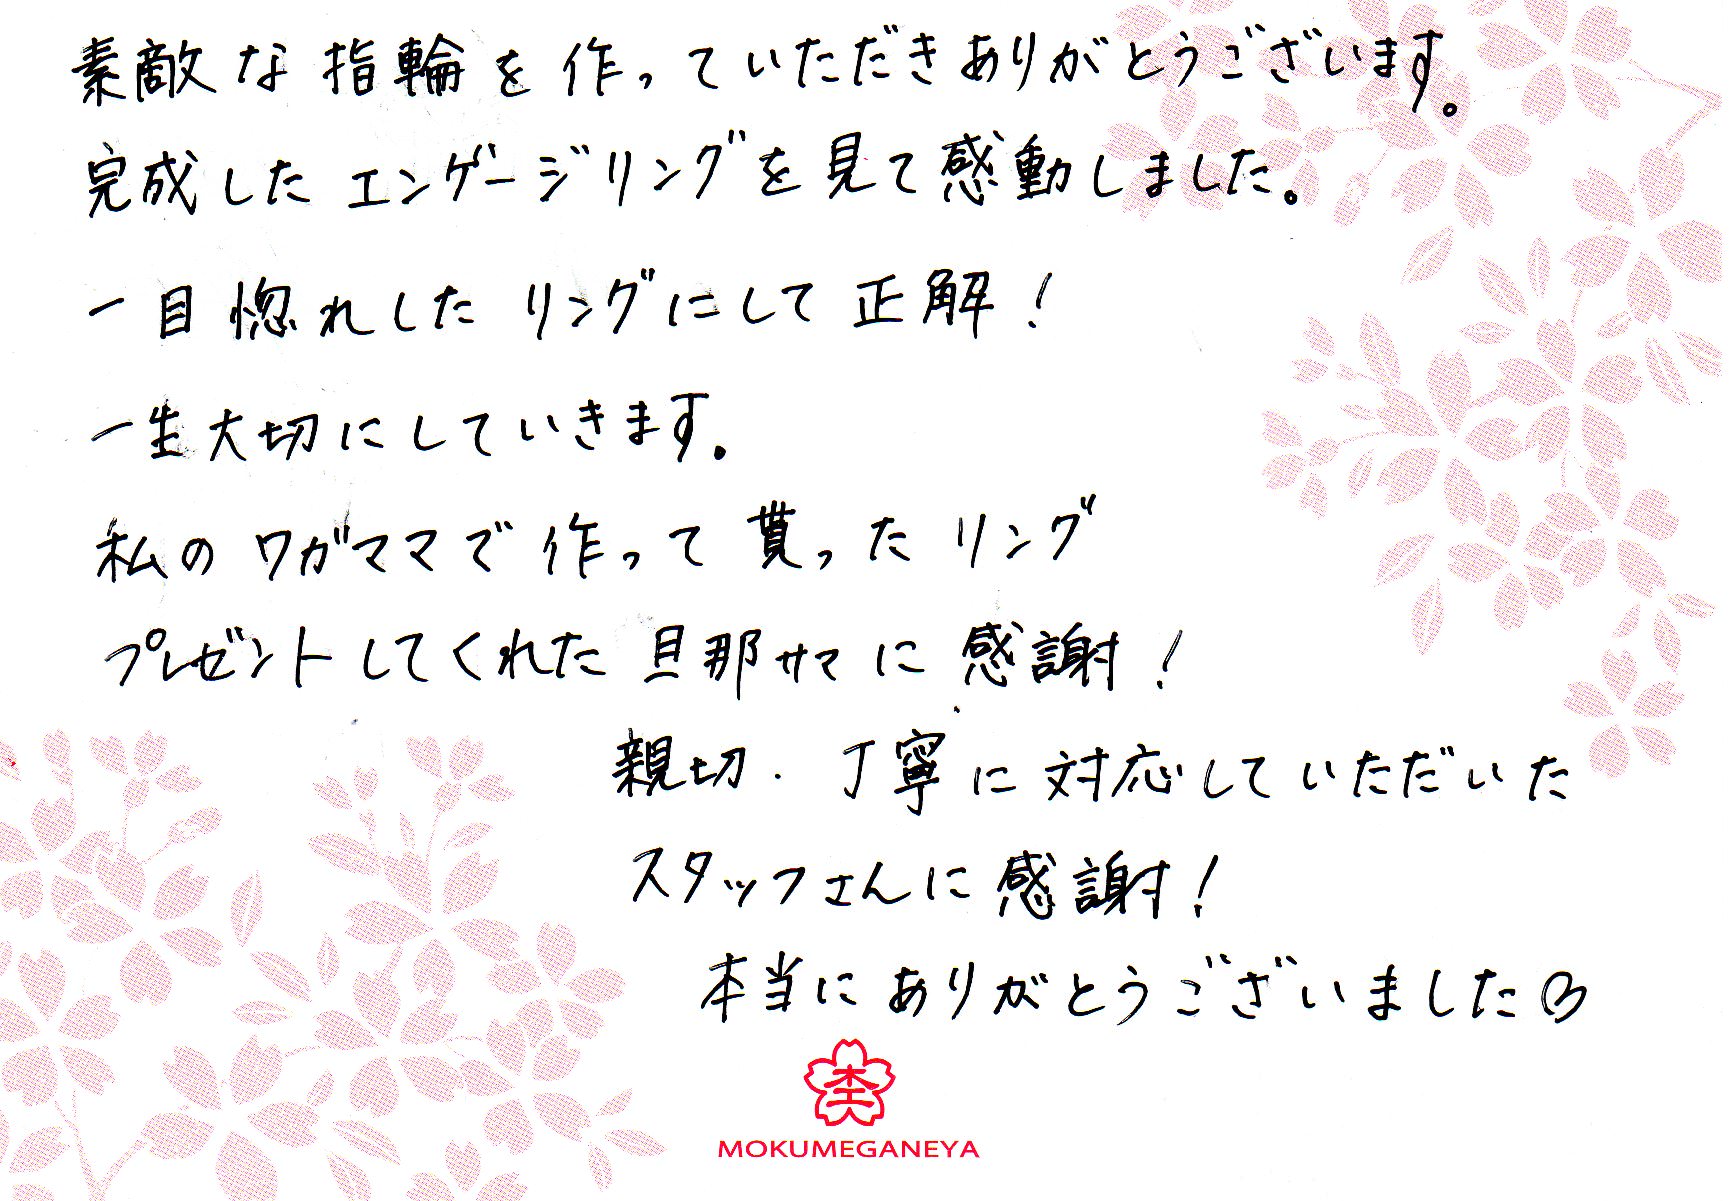 素敵な指輪を作っていただきありがとうございます。
完成したエンゲージリングを見て感動しました。
一目惚れしたリングにして正解！
一生大切にしていきます。
私のワガママで作って貰ったリング
プレゼントしてくれた旦那サマに感謝！
親切・丁寧に対応していただいた
スタッフさんに感謝！
本当にありがとうございました♡
杢
MOKUMEGANEYA